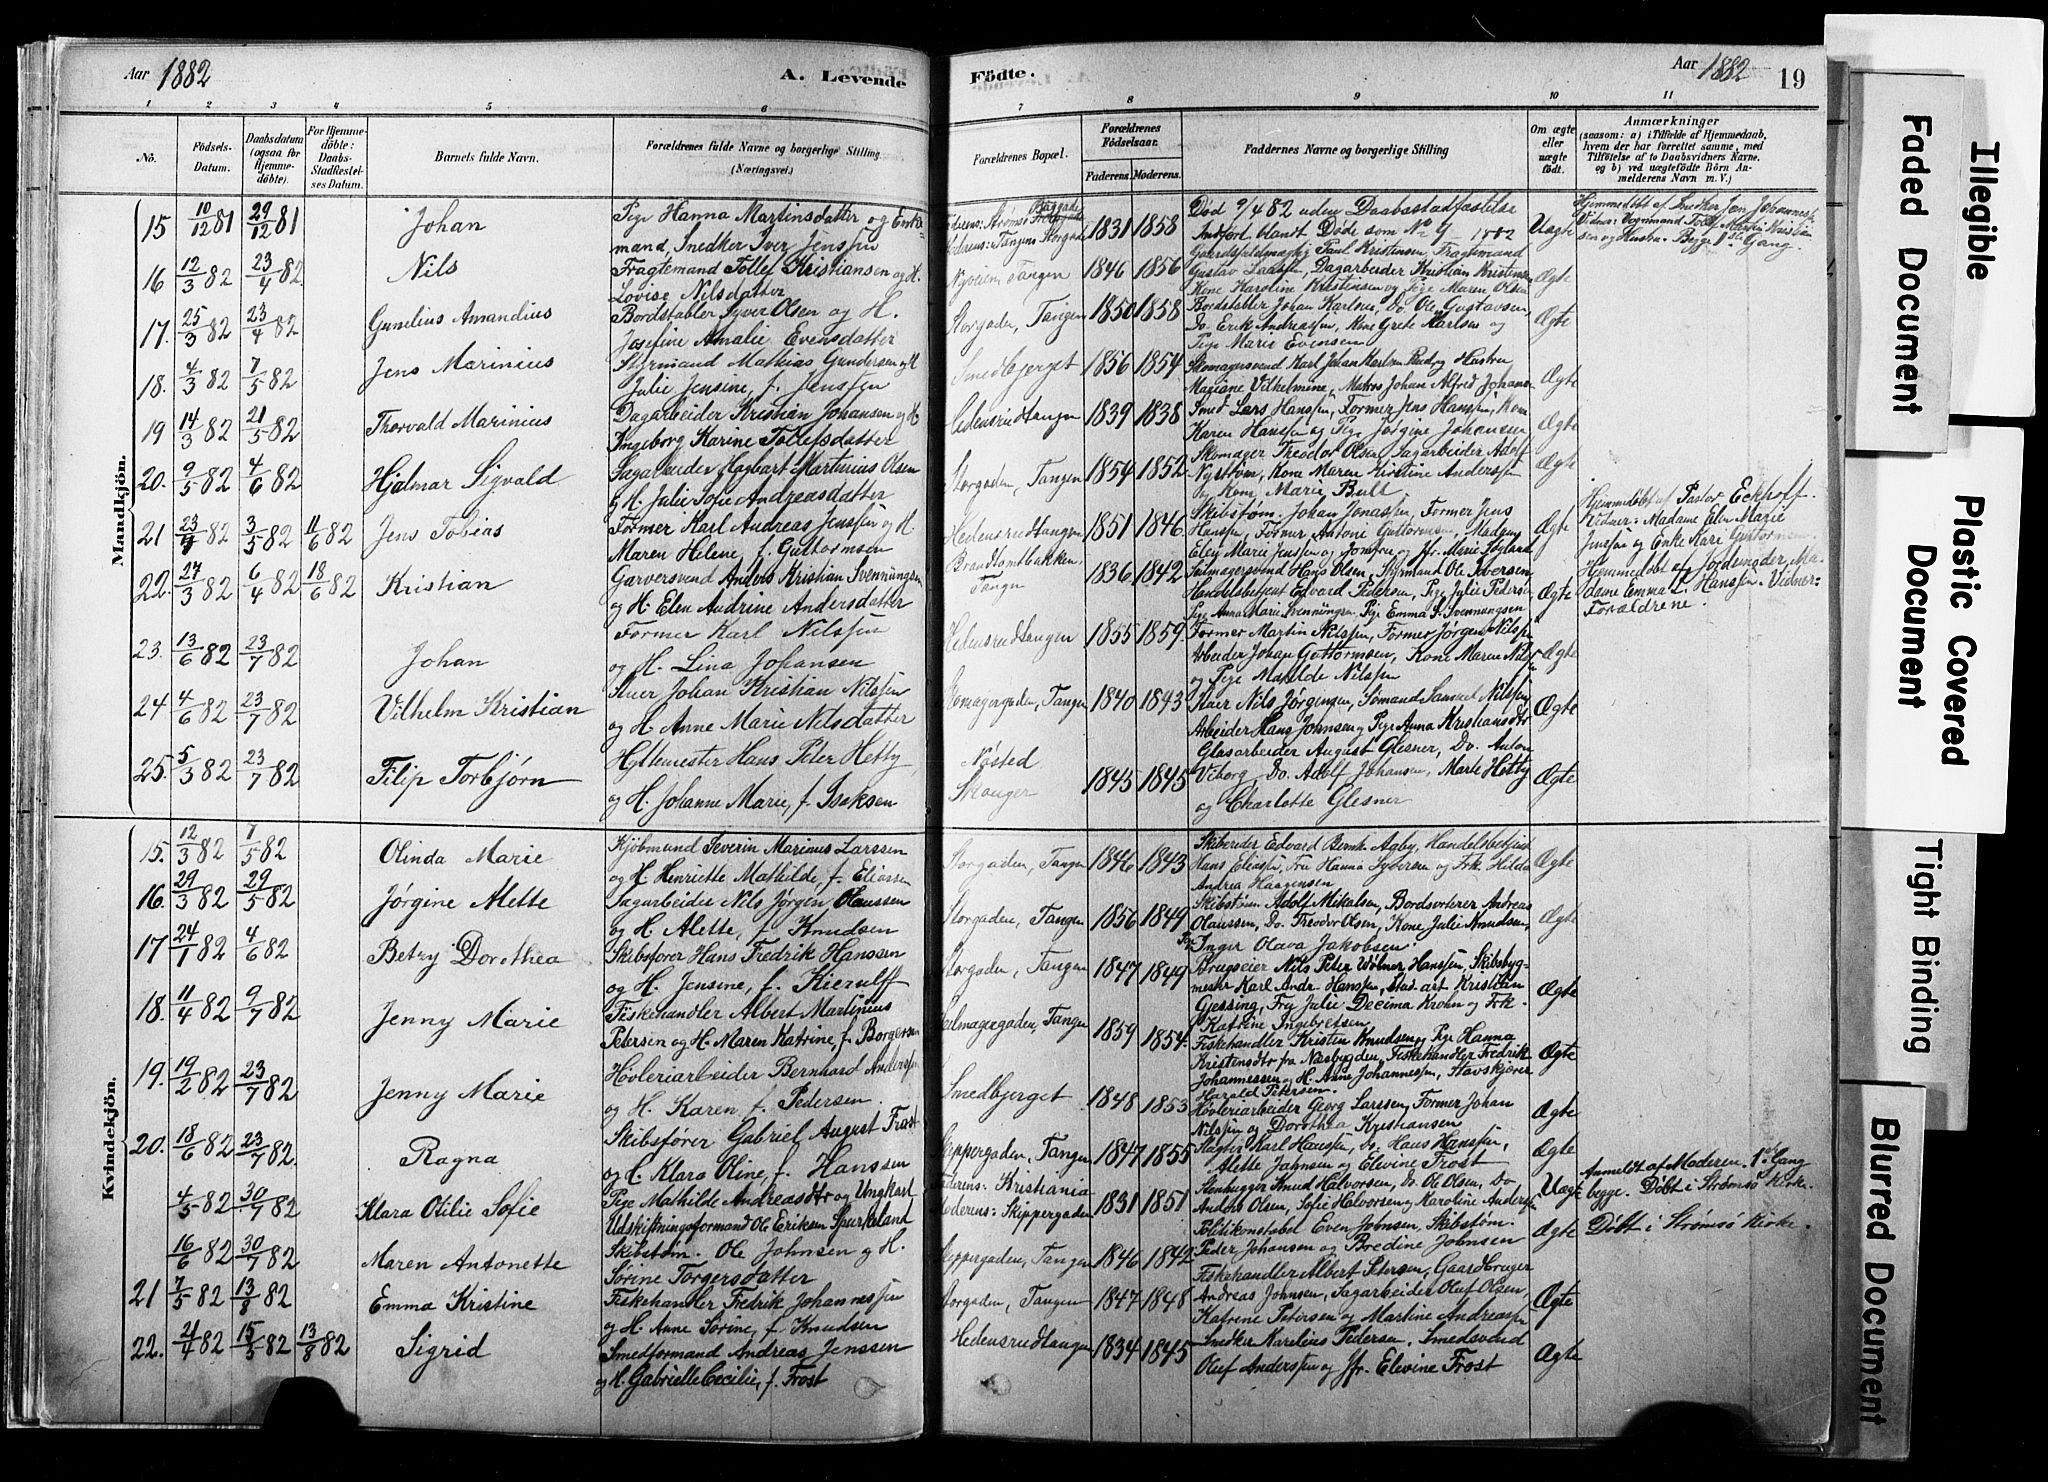 Aar 1882
A. Levende
Födte.
Aar 1882
19
1 2 3 4 5 6 7 8 9 10 11
No.
Födsels-
Datum.
Daabsdatum
(ogsaa for
Hjemme-
döbte).
For Hjemme-
döbte:
Daabs-
Stadfæstel-
ses Datum.
Barnets fulde Navn.
Forældrenes fulde Navne og borgerlige Stilling
(Næringsvei.)
Forældrenes Bopæl.
Forældrenes
Födselsaar.
Faderens. Moderens.
Faddernes Navne og borgerlige Stilling
Om ægte
eller
uægte
födt.
Anmærkninger
(saasom: a) i Tilfælde af Hjemmedaab,
hvem der har forrettet samme, med
Tilföielse af to Daabsvidners Navne.
og b) ved uægtefödte Börn An-
melderens Navn m. V.)
Mandkjön.
15 10/12 81 29/12 81 Johan
Pige Hanna Martinsdatter og Enke-
mand, Snedker Iver Jenssen
1831 1858
Død 9/4 82 uden Daabsstadfæstelse
Anført blandt Døde som No 9 1882
Uægte
16 12/3 82 23/4 82 Nils
Fragtemand Tollef Kristiansen og H.
Lovise Nilsdatter
Nyveien, Tangen 1846 1856
Paul Kristensen, Fragtemand
Gustav Laassen, Dagarbeider Kristian Kristensen
Kone Karoline Kristensen og Pige Maren Olsen
Ægte
17. 25/3 82 23/4 82 Gunilius Amandius
Bordstabler Syver Olsen og H.
Josefine Amalie Evensdatter
Storgaden, Tangen 1850 1858
Bordstabler Johan Karlsen, Do. Ole Gustavsen,
Do. Erik Andreassen, Kone Grete Karlsen og
Pige Marie Evensen
Ægte
18. 4/3 82 7/5 82 Jens Marinius
Styrmand Mathias Gundersen og H
Julie Jensine, f. Jenssen
Smedbjerget 1856 1854
Skomagersvend Karl Johan Karlsen Rud og Hustru
Mariane Vilhelmine, Matros Johan Alfred Johans
Ægte
19 14/3 82 21/5 82 Thorvald Marinius
Dagarbeider Kristian Johansen og H.
Ingeborg Karine Tollefsdatter
Hedensrudtangen 1839 1838
Smed Lars Hanssen, Former Jens Hanssen, Kone
Karen Hanssen og Pige Jørgine Johansen
Ægte
20. 9/5 82 4/6 82 Hjalmar Sigvald
Sagarbeider Hagbart Martinius Olsen
og H. Julie Sofie Andreasdatter
Storgaden, Tangen 1854 1852
Skomager Theodor Olsen, Sagarbeider Adolf
Nystrøm, Kone Maren Kirstine Anderssen
og Kone Marie Bull
Ægte
21 23/4 82 3/5 82 11/6 82 Jens Tobias
Former Karl Andreas Jenssen og H
Maren Helene, f. Guttormsen
Hedensrudtangen 1851 1846
Skibstøm. Johan Jonassen, Former Jens
Hanssen, Former Antoni Guttormsen, Madam
Elen Marie Jenssen og Jomfru
Ægte
Hjemmedøbt af Pastor Eckhoff.
Vidner: Madame Elen Marie
Jenssen og Enke Kari Guttormsen
22. 27/3 82 6/4 82 18/6 82 Kristian
Garversvend Anders Kristian Svennungsen
og H. Elen Andrine Andersdatter
Tangen 1836 1842
Seilmagersvend Hans Olsen, Styrmand Ole Iversen
Handelsbetjent Edvard Pedersen, Pige Julie Pedersen
Pige Anna Marie Svennungsen Pige Emma S. Svennungsen
Ægte
Hjemmedøbt af Jordemoder Ma-
dame Emma L. Hanssen. Vidner:
Forældrene.
23. 13/6 82 23/7 82 Johan
Former Karl Nilssen
og H. Lina Johansen
Hedensrudtangen 1855 1859
Former Martin Nilssen, Former Jørgen Nilssen
Arbeider Johan Guttormsen, Kone Maren Nilssen
og Pige Matilde Nilssen
Ægte
24 4/6 82 23/7 82 Vilhelm Kristian
Stuer Johan Kristian Nilssen
og H. Anne Marie Nilsdatter
Skomagergaden, Tangen 1840 1843
Stuer Nils Jørgensen, Sømand Samuel Nilssen
Arbeider Hans Johnsen og Pige Anna Kristiansdtr
Ægte
25. 5/3 82 23/7 82 Filip Torbjørn
Hyttemester Hans Peter Hetty
og H. Johanne Marie, f. Isaksen
Nøsted
Skouger 1843 1845
Glasarbeider August Glesner, Do. Anton
Viborg, Do. Adolf Johansen, Marie Hetty
og Charlotte Glesner
Ægte
Kvindekjön.
15. 12/3 82 7/5 82 Olinda Marie
Kjøbmand Severin Marinus Larssen
og H. Henriette Mathilde, f. Eliassen
Storgaden, Tangen 1846 1843
Skibsreder Edvard Bernh. Aaby, Handelsbetjent
Hans Eliassen, Fru Hanna Syversen og Frk. Hilda
Andrea Haagensen
Ægte
16. 29/3 82 29/5 82 Jørgine Alette
Sagarbeider Nils Jørgen Olaussen
og H. Alette, f. Knudsen
Storgaden, Tangen 1856 1849
Skibstøm Adolf Mikalsen, Bordsorterer Andreas
Olaussen, Do. Theodor Olsen, Kone Julie Knudsen,
Pige Inger Olava Jakobsen
Ægte
17 24/1 82 4/6 82 Betzy Dorothea
Skibsfører Hans Fredrik Hanssen
og H. Jensine, f. Kierulff
Storgaden, Tangen 1847 1849
Brugseier Nils Peter Wølner Hanssen, Skibsbyg-
mester Karl Andr. Hanssen, Stud. art Kristian
Gessing, Frk Julie Decima Krohn og Frk.
Katrine Ingebretsen
Ægte
18. 11/4 82 9/7 82 Jenny Marie
Fiskehandler Albert Martinius
Petersen og H. Maren Katrine, f. Borgersen
Seilmagergaden, Tangen 1859 1854
Fiskehandler Kristen Knudsen og Pige Hanna
Kristensdtr fra Næsbygden, Fiskehandler Fredrik
Johannessen og H. Anne Johannessen, Stavskjærer
Harald Petersen.
Ægte
19. 19/2 82 23/7 82 Jenny Marie
Høvleriarbeider Bernhard Anderssen
og H. Karen, f. Pedersen.
Smedbjerget 1848 1853
Høvleriarbeider Georg Larssen, Former Johan
Nilssen og Dorothea Kristiansen
Ægte
20. 18/6 82 23/7 82. Ragna
Skibsfører Gabriel August Frost
og H. Klara Oline, f. Hanssen
Skippergaden, Tangen 1847 1855
Karl Hanssen, Do. Hans Hanssen,
Alette Jahnsen og Elevine Frost
Ægte
4/5 82 30/7 82 Klara Otilie Sofie
Pige Mathilde Andreasdtr og Ungkarl
Udskiftningsformand Ole Eriksen Spurkeland
Faderens: Kristiania
Moderens: Skippergaden 1831 1851
Stenhugger Knud Halvorsen, Do. Ole Olsen, Do
Anders Olsen, Sofie Halvorsen og Karoline Anderssen
Uægte
Anmeldt af Moderen. 1ste Gang
begge. Døbt i Strømsø Kirke.
16/6 82 30/7 82 Maren Antonette
Skibstøm. Ole Johnsen og H.
Sørine Torgersdatter
Skippergaden, Tangen 1846 1842
Politikonstabel Even Johnsen, Skibstøm.
Peder Johansen og Bredine Johnsen
Ægte Døbt i Strømsø Kirke.
21 7/5 82 13/8 82 Emma Kristine
Fiskehandler Fredrik Johannessen
og H. Anne Sørine, f. Knudsen
Storgaden, Tangen 1847 1848
Fiskehandler Albert Petersen, Gaardbruger
Andreas Johnsen, Sagarbeider Oluf Olsen,
Katrine Petersen og Martine Andreassen
Ægte
22. 21/4 82 15/5 82 13/8 82 Sigrid
Smedformand Andreas Jenssen
og H. Gabrielle Cecilie, f. Frost
Hedensrudtangen 1834 1845
Snedker Karelius Pedersen, Smedsvend
Oluf Anderssen og Jfr. Elevine Frost
Ægte
Illegible
Faded Document
Plastic Covered
Document
Tight Binding
Blurred Document